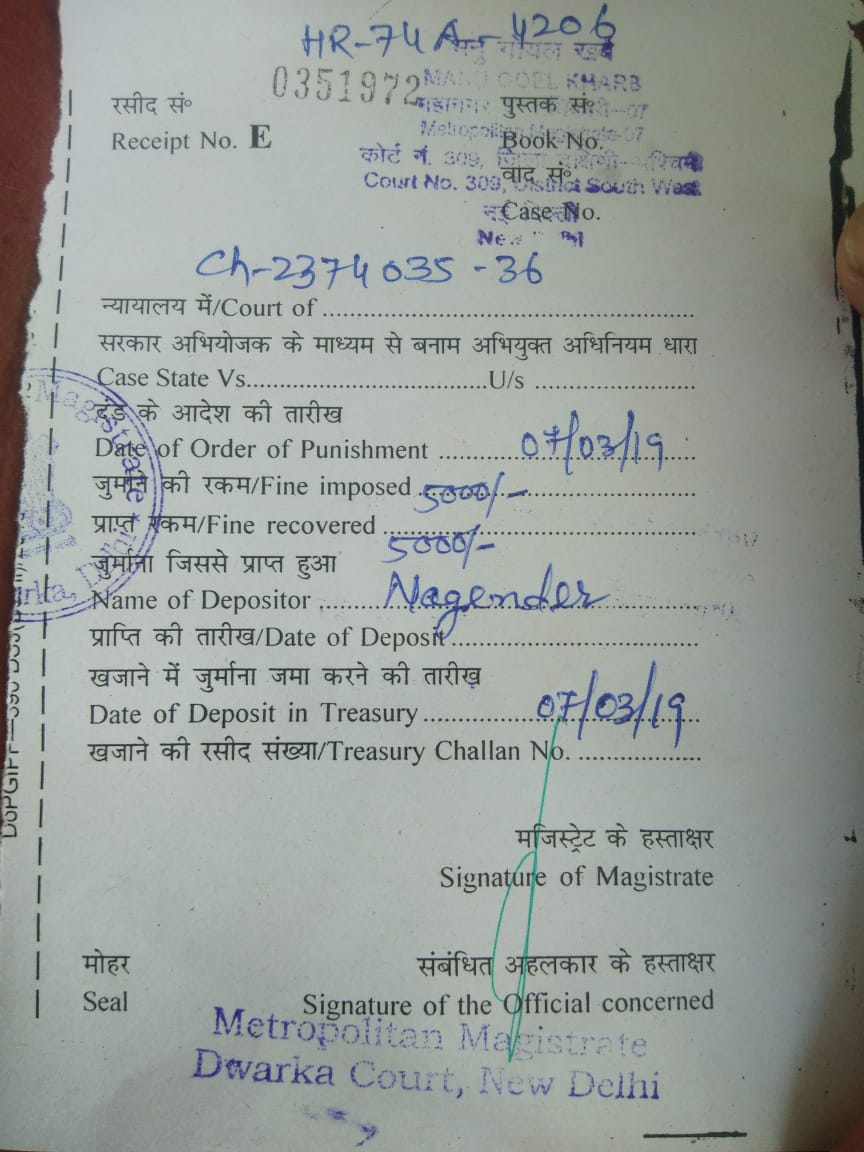 HR-74A-4206
0351972
मनु गोयल खर्ब
MANU GOEL KHARB
रसीद सं०
पुस्तक सं०
महानगर
07
Receipt No. E
Metropolitan Magistrate-07
Book No.
कोर्ट नं. 309,
वाद सं०
Court No. 309, District South West
Case No.
Ch-2374035-36
न्यायालय में/Court of
सरकार अभियोजक के माध्यम से बनाम अभियुक्त अधिनियम धारा
Case State Vs. U/s
दंड के आदेश की तारीख
Date of Order of Punishment 07/03/19
जुर्माने की रकम/Fine imposed 5000/-
प्राप्त रकम/Fine recovered 5000/-
जुर्माना जिससे प्राप्त हुआ
Name of Depositor Nagender
प्राप्ति की तारीख/Date of Deposit
खजाने में जुर्माना जमा करने की तारीख
Date of Deposit in Treasury 07/03/19
खजाने की रसीद संख्या/Treasury Challan No.
मजिस्ट्रेट के हस्ताक्षर
Signature of Magistrate
मोहर
संबंधित अहलकार के हस्ताक्षर
Seal
Signature of the Official concerned
Metropolitan Magistrate
Dwarka Court, New Delhi
Magistrate
Delhi